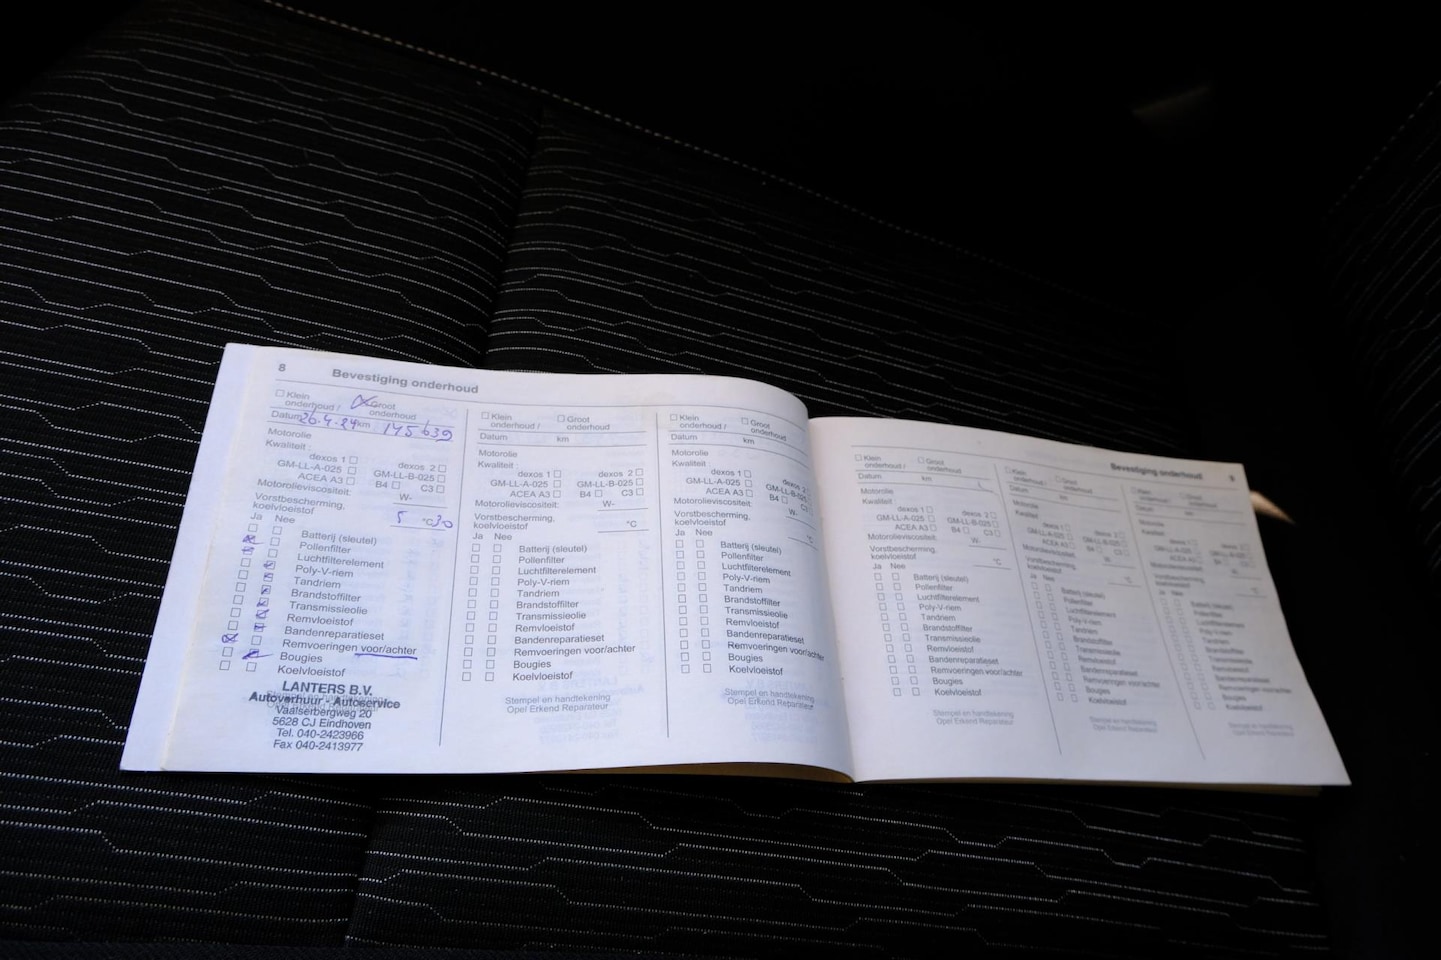 8 Bevestiging onderhoud
Klein onderhoud / Groot onderhoud
Datum 26-4-24 km 145639
Motorolie
Kwaliteit
dexos 1 dexos 2
GM-LL-A-025 GM-LL-B-025
ACEA A3 B4 C3
Motorolieviscositeit: W-
Vorstbescherming, koelvloeistof °C 30
Ja Nee
Batterij (sleutel)
Pollenfilter
Luchtfilterelement
Poly-V-riem
Tandriem
Brandstoffilter
Transmissieolie
Remvloeistof
Bandenreparatieset
Remvoeringen voor/achter
Bougies
Koelvloeistof
Stempel en handtekening
LANTERS B.V.
Autoverhuur - Autoservice
Vaalserbergweg 20
5628 CJ Eindhoven
Tel. 040-2423966
Fax 040-2413977
Klein onderhoud / Groot onderhoud
Datum km
Motorolie
Kwaliteit
dexos 1 dexos 2
GM-LL-A-025 GM-LL-B-025
ACEA A3 B4 C3
Motorolieviscositeit: W-
Vorstbescherming, koelvloeistof °C
Ja Nee
Batterij (sleutel)
Pollenfilter
Luchtfilterelement
Poly-V-riem
Tandriem
Brandstoffilter
Transmissieolie
Remvloeistof
Bandenreparatieset
Remvoeringen voor/achter
Bougies
Koelvloeistof
Stempel en handtekening
Opel Erkend Reparateur
Klein onderhoud / Groot onderhoud
Datum km
Motorolie
Kwaliteit
dexos 1 dexos 2
GM-LL-A-025 GM-LL-B-025
ACEA A3 B4 C3
Motorolieviscositeit: W-
Vorstbescherming, koelvloeistof °C
Ja Nee
Batterij (sleutel)
Pollenfilter
Luchtfilterelement
Poly-V-riem
Tandriem
Brandstoffilter
Transmissieolie
Remvloeistof
Bandenreparatieset
Remvoeringen voor/achter
Bougies
Koelvloeistof
Stempel en handtekening
Opel Erkend Reparateur
Bevestiging onderhoud 9
Klein onderhoud / Groot onderhoud
Datum km
Motorolie
Kwaliteit
dexos 1 dexos 2
GM-LL-A-025 GM-LL-B-025
ACEA A3 B4 C3
Motorolieviscositeit: W-
Vorstbescherming, koelvloeistof °C
Ja Nee
Batterij (sleutel)
Pollenfilter
Luchtfilterelement
Poly-V-riem
Tandriem
Brandstoffilter
Transmissieolie
Remvloeistof
Bandenreparatieset
Remvoeringen voor/achter
Bougies
Koelvloeistof
Stempel en handtekening
Opel Erkend Reparateur
Klein onderhoud / Groot onderhoud
Datum km
Motorolie
Kwaliteit
dexos 1 dexos 2
GM-LL-A-025 GM-LL-B-025
ACEA A3 B4 C3
Motorolieviscositeit: W-
Vorstbescherming, koelvloeistof °C
Ja Nee
Batterij (sleutel)
Pollenfilter
Luchtfilterelement
Poly-V-riem
Tandriem
Brandstoffilter
Transmissieolie
Remvloeistof
Bandenreparatieset
Remvoeringen voor/achter
Bougies
Koelvloeistof
Stempel en handtekening
Opel Erkend Reparateur
Klein onderhoud / Groot onderhoud
Datum km
Motorolie
Kwaliteit
dexos 1 dexos 2
GM-LL-A-025 GM-LL-B-025
ACEA A3 B4 C3
Motorolieviscositeit: W-
Vorstbescherming, koelvloeistof °C
Ja Nee
Batterij (sleutel)
Pollenfilter
Luchtfilterelement
Poly-V-riem
Tandriem
Brandstoffilter
Transmissieolie
Remvloeistof
Bandenreparatieset
Remvoeringen voor/achter
Bougies
Koelvloeistof
Stempel en handtekening
Opel Erkend Reparateur